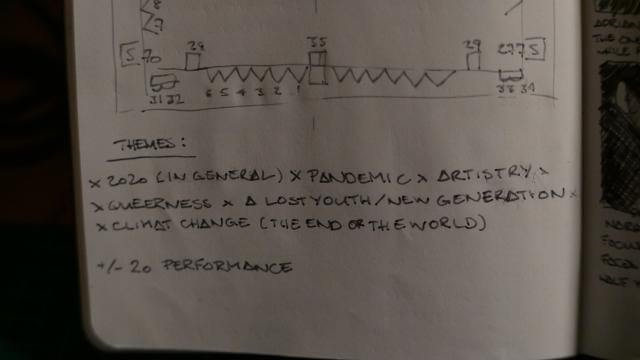 8
7
S 70 29 35 29 27 S
31 32 6 5 4 3 2 1 33 34
THEMES:
x 2020 (IN GENERAL) x PANDEMIC x ARTISTRY x
x QUEERNESS x A LOST YOUTH/NEW GENERATION x
x CLIMAT CHANGE (THE END OF THE WORLD)
+/- 20 PERFORMANCE
THE ONE